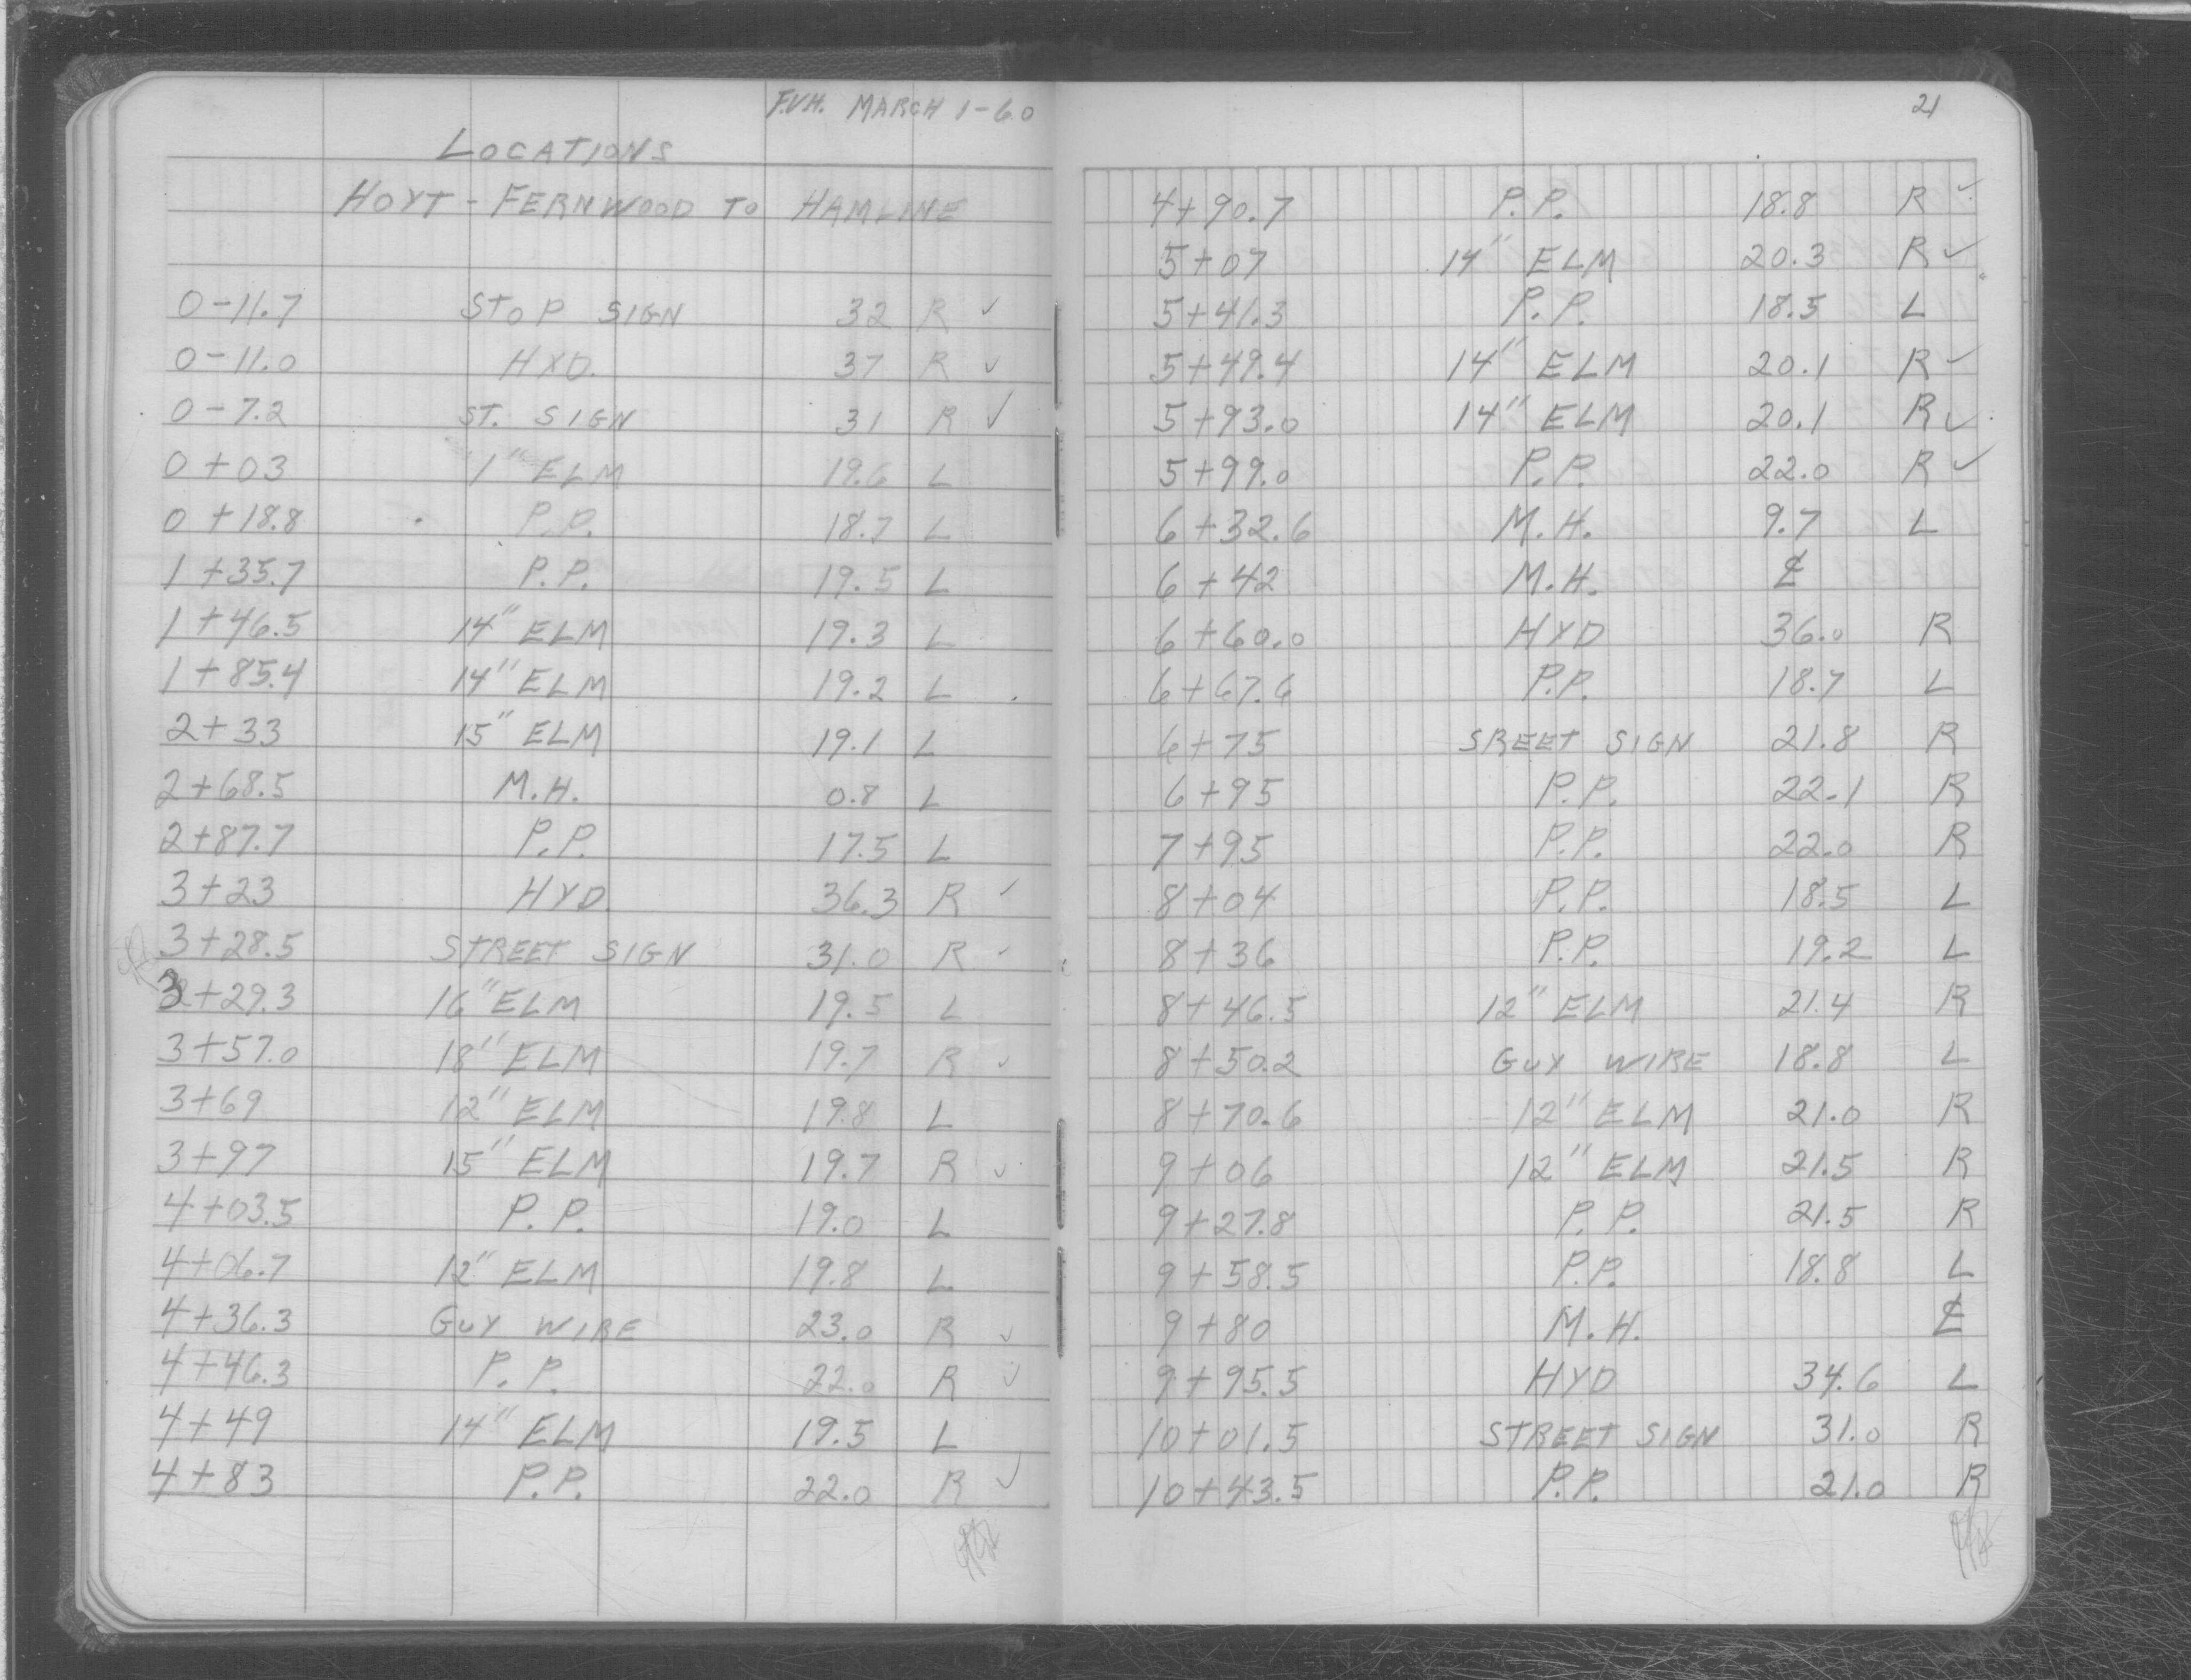 F.V.H. MARCH 1-60
LOCATIONS
HOYT - FERNWOOD TO HAMLINE
0-11.7 STOP SIGN 32 R ✓
0-11.0 HYD. 37 R ✓
0-7.2 ST. SIGN 31 R ✓
0+03 1" ELM 19.6 L
0+18.8 P.P. 18.7 L
1+35.7 P.P. 19.5 L
1+46.5 14" ELM 19.3 L
1+85.4 14" ELM 19.2 L
2+33 15" ELM 19.1 L
2+68.5 M.H. 0.8 L
2+87.7 P.P. 17.5 L
3+23 HYD. 36.3 R ✓
3+28.5 STREET SIGN 31.0 R ✓
3+29.3 16" ELM 19.5 L
3+57.0 18" ELM 19.7 R ✓
3+69 12" ELM 19.8 L
3+97 15" ELM 19.7 R ✓
4+03.5 P.P. 19.0 L
4+06.7 12" ELM 19.8 L
4+36.3 GUY WIRE 23.0 R ✓
4+46.3 P.P. 22.0 R ✓
4+49 14" ELM 19.5 L
4+83 P.P. 22.0 R ✓
21
4+90.7 P.P. 18.8 R ✓
5+07 14" ELM 20.3 R ✓
5+41.3 P.P. 18.5 L
5+49.4 14" ELM 20.1 R ✓
5+93.0 14" ELM 20.1 R ✓
5+99.0 P.P. 22.0 R ✓
6+32.6 M.H. 9.7 L
6+42 M.H. ℄
6+60.0 HYD 36.0 R
6+67.6 P.P. 18.7 L
6+75 SREET SIGN 21.8 R
6+95 P.P. 22.1 R
7+95 P.P. 22.0 R
8+04 P.P. 18.5 L
8+36 P.P. 19.2 L
8+46.5 12" ELM 21.4 R
8+50.2 GUY WIRE 18.8 L
8+70.6 12" ELM 21.0 R
9+06 12" ELM 21.5 R
9+27.8 P.P. 21.5 R
9+58.5 P.P. 18.8 L
9+80 M.H. ℄
9+95.5 HYD 34.6 L
10+01.5 STREET SIGN 31.0 R
10+43.5 P.P. 21.0 R